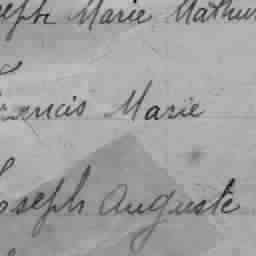 seph Marie Mathur
Francis Marie
Joseph Auguste